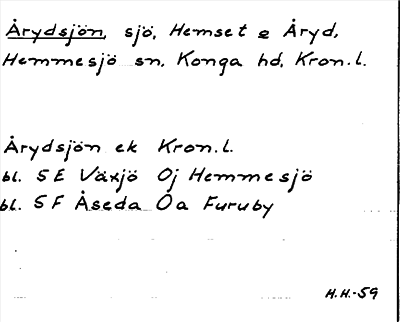 Årydsjön, sjö, Hemset o Åryd,
Hemmesjö sn, Konga hd, Kron.l.
Årydsjön ek Kron.l.
bl. 5E Växjö 0j Hemmesjö
bl. 5F Åseda 0a Furuby
H.H.-59